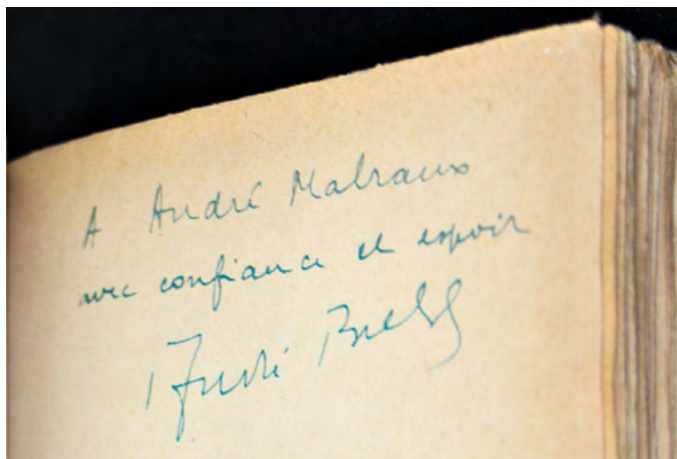 A André Malraux
avec confiance et espoir
André